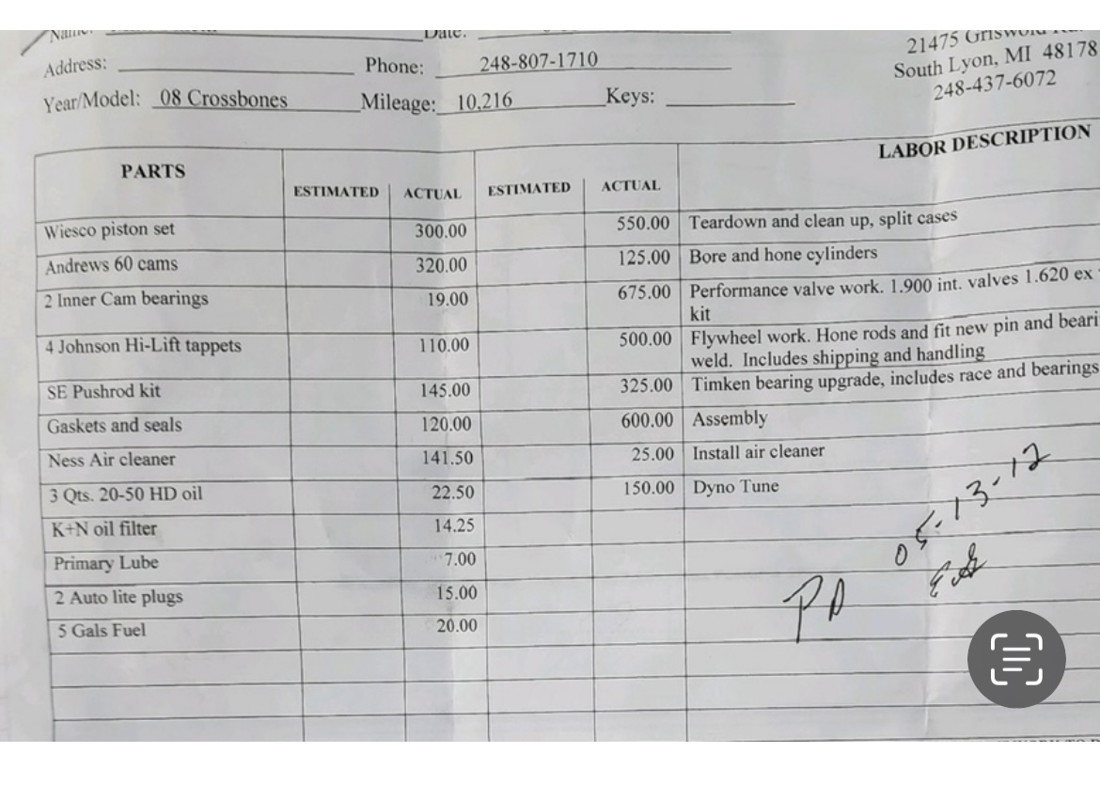 Name: Date:
Address: Phone: 248-807-1710
Year/Model: 08 Crossbones Mileage: 10,216 Keys:
21475 Griswold
South Lyon, MI 48178
248-437-6072
PARTS ESTIMATED ACTUAL ESTIMATED ACTUAL LABOR DESCRIPTION
Wiesco piston set 300.00 550.00 Teardown and clean up, split cases
Andrews 60 cams 320.00 125.00 Bore and hone cylinders
2 Inner Cam bearings 19.00 675.00 Performance valve work. 1.900 int. valves 1.620 ex
kit
4 Johnson Hi-Lift tappets 110.00 500.00 Flywheel work. Hone rods and fit new pin and beari
weld. Includes shipping and handling
SE Pushrod kit 145.00 325.00 Timken bearing upgrade, includes race and bearings
Gaskets and seals 120.00 600.00 Assembly
Ness Air cleaner 141.50 25.00 Install air cleaner
3 Qts. 20-50 HD oil 22.50 150.00 Dyno Tune
K+N oil filter 14.25
Primary Lube 7.00
2 Auto lite plugs 15.00
5 Gals Fuel 20.00
05-13-12
PD